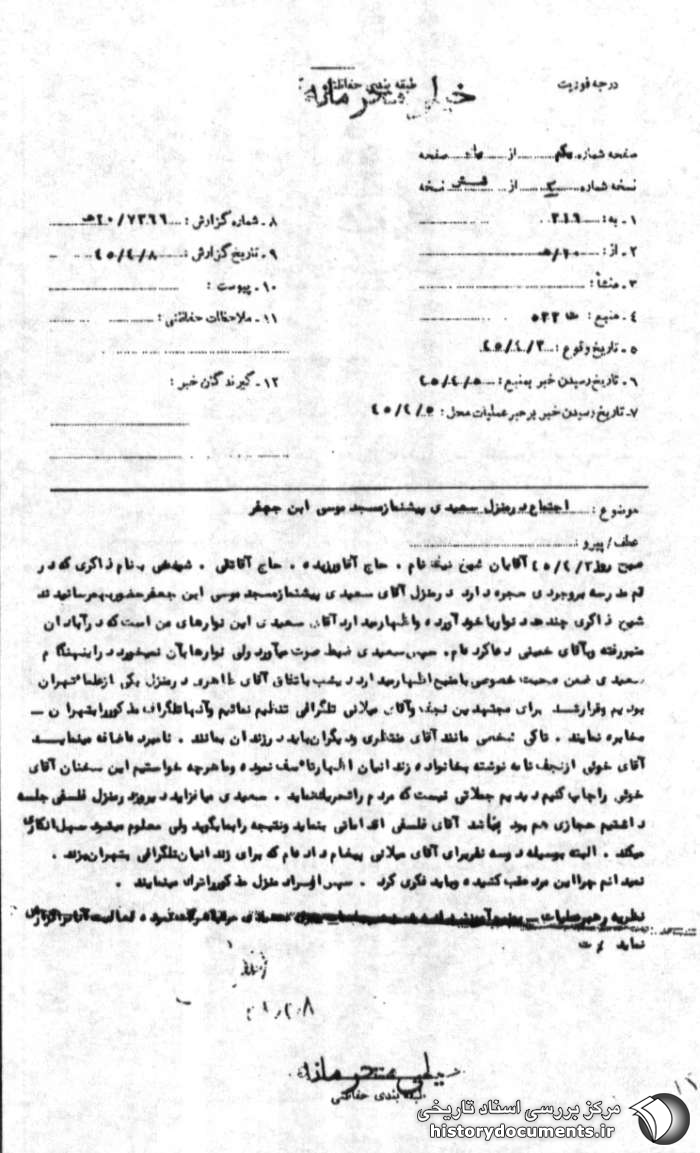 درجه فوریت
طبقه بندی حفاظتی:
خیلی محرمانه
صفحه شماره یکم از یک صفحه
نسخه شماره ۳ از شش نسخه
۱ـ به: ۳۱۶
۲ـ از: ۲۰/ه
۳ـ منشأ:
۴ـ منبع: ۵۳۳
۵ـ تاریخ وقوع: ۴۵/۴/۲
۶ـ تاریخ رسیدن خبر بمنبع: ۴۵/۴/۵
۷ـ تاریخ رسیدن خبر برهبر عملیات محل: ۴۵/۴/۵
۸ـ شماره گزارش: ۲۰/۷۳۶۶ه
۹ـ تاریخ گزارش: ۴۵/۴/۸
۱۰ـ پیوست:
۱۱ـ ملاحظات حفاظتی:
۱۲ـ گیرندگان خبر:
موضوع: اجتماع در منزل سعیدی پیشنماز مسجد موسی ابن جعفر
عطف/پیرو:
صبح روز ۴۵/۴/۲ آقایان شیخ نام، حاج آقا، حاج آقا، شیخی بنام ذاکری که در
قم مدرسه بروجردی حجره دارد در منزل آقای سعیدی پیشنماز مسجد موسی ابن جعفر حضور بهمرسانیدند
شیخ ذاکری چند عدد نوار با خود آورده و اظهار میدارد آقای سعیدی این نوارهای من است که در آبادان
منبر رفته و بآقای خمینی دعا کرده‌ام. سپس سعیدی ضبط صوت میآورد ولی نوارها بآن نمیخورد در اینهنگام
سعیدی ضمن صحبت خصوصی با منبع اظهار میدارد دیشب باتفاق آقای طاهری در منزل یکی از علماء تهران
بودیم و قرار شد برای مجتهدین نجف و آقای میلانی تلگرافی تنظیم نمائیم و آنها تلگراف مذکور را بتهران ـ
مخابره نمایند. تا کی شخصی مانند آقای منتظری و دیگران باید در زندان بمانند. نامبرده اضافه مینماید
آقای خوئی از نجف نامه نوشته بخانواده زندانیان اظهار تأسف نموده و ما هرچه خواستیم این سخنان آقای
خوئی را چاپ کنیم دیدیم جملاتی نیست که مردم را تحریک نماید. سعیدی میافزاید دیروز در منزل فلسفی جلسه
داشتیم حجازی هم بود بنا شد آقای فلسفی اقداماتی بنماید و نتیجه را بما بگوید ولی معلوم میشود سهل‌انکاری
میکند. البته بوسیله دو سه نفر برای آقای میلانی پیغام داده‌ام که برای زندانیان تلگرافی بتهران بزند.
نمیدانم چرا این مرد عقب کشیده و باید فکری کرد. سپس افراد منزل مذکور را ترک مینمایند.
نظریه رهبر عملیات ـ
نماید
خیلی محرمانه
طبقه بندی حفاظتی
۱۱
مرکز بررسی اسناد تاریخی
historydocuments.ir